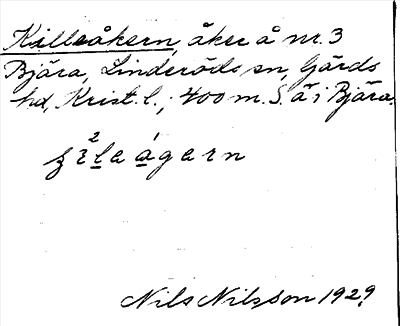 Källeåkern, åker å nr. 3
Bjära, Linderöds sn, Gärds
hd, Krist. l.; 400 m. S. ä i Bjära.
Nils Nilsson 1929